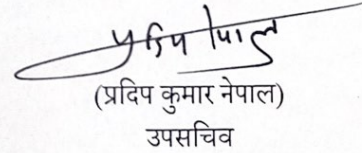 प्रदिप नेपाल
(प्रदिप कुमार नेपाल)
उपसचिव